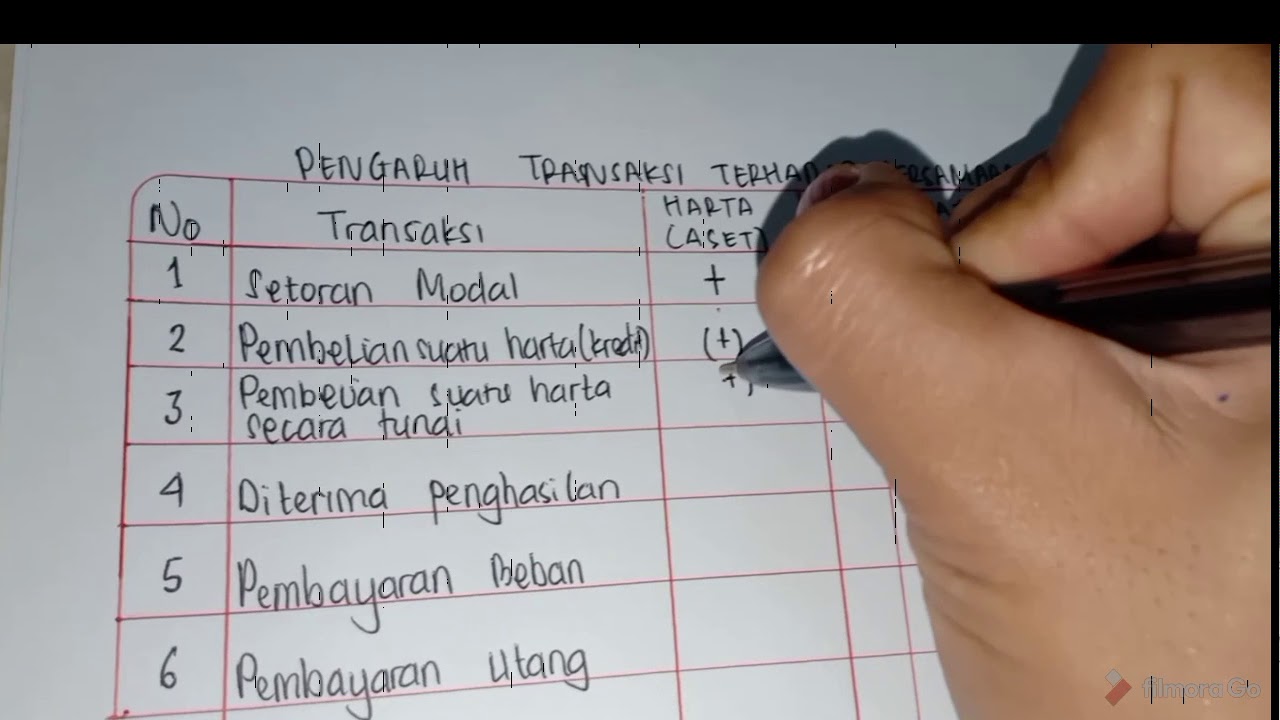 PENGARUH TRANSAKSI
No Transaksi HARTA (ASET)
1 Setoran Modal +
2 Pembelian suatu harta (kredit) (+)
3 Pembelian suatu harta +,
secara tunai
4 Diterima penghasilan
5 Pembayaran Beban
6 Pembayaran Utang
filmora Go